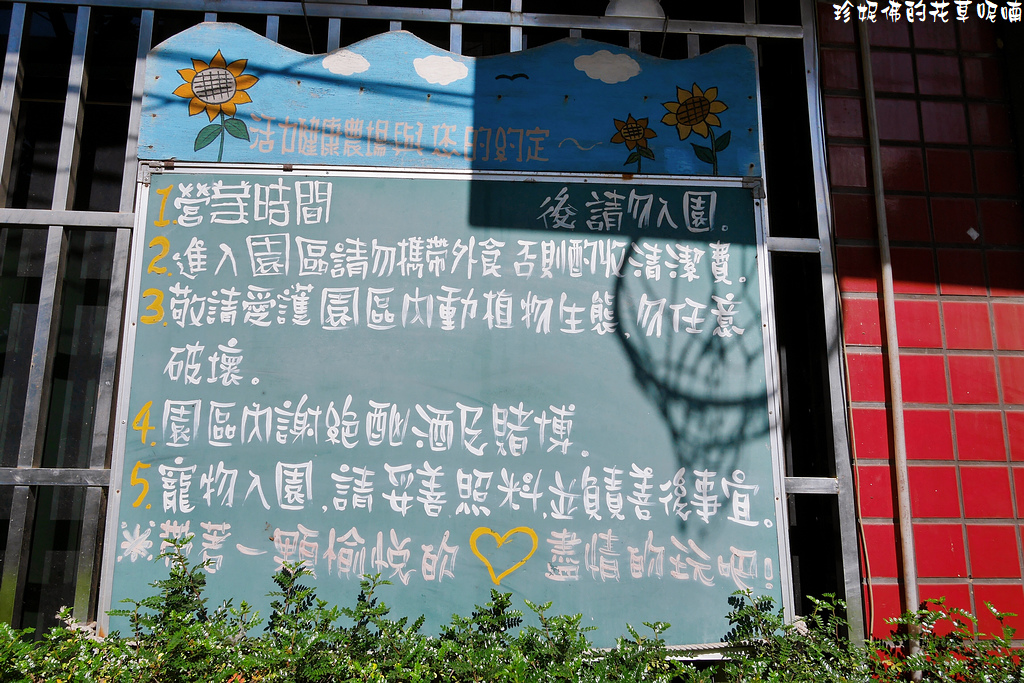 珍妮佛的花草呢喃
活力健康農場與您的約定～
1.營業時間 後請勿入園.
2.進入園區請勿攜帶外食 否則酌收清潔費。
3.敬請愛護園區內動植物生態,勿任意
破壞。
4.園區內謝絕酗酒及賭博.
5.寵物入園,請妥善照料,並負責善後事宜。
※帶著一顆愉悅的♡盡情的玩吧!